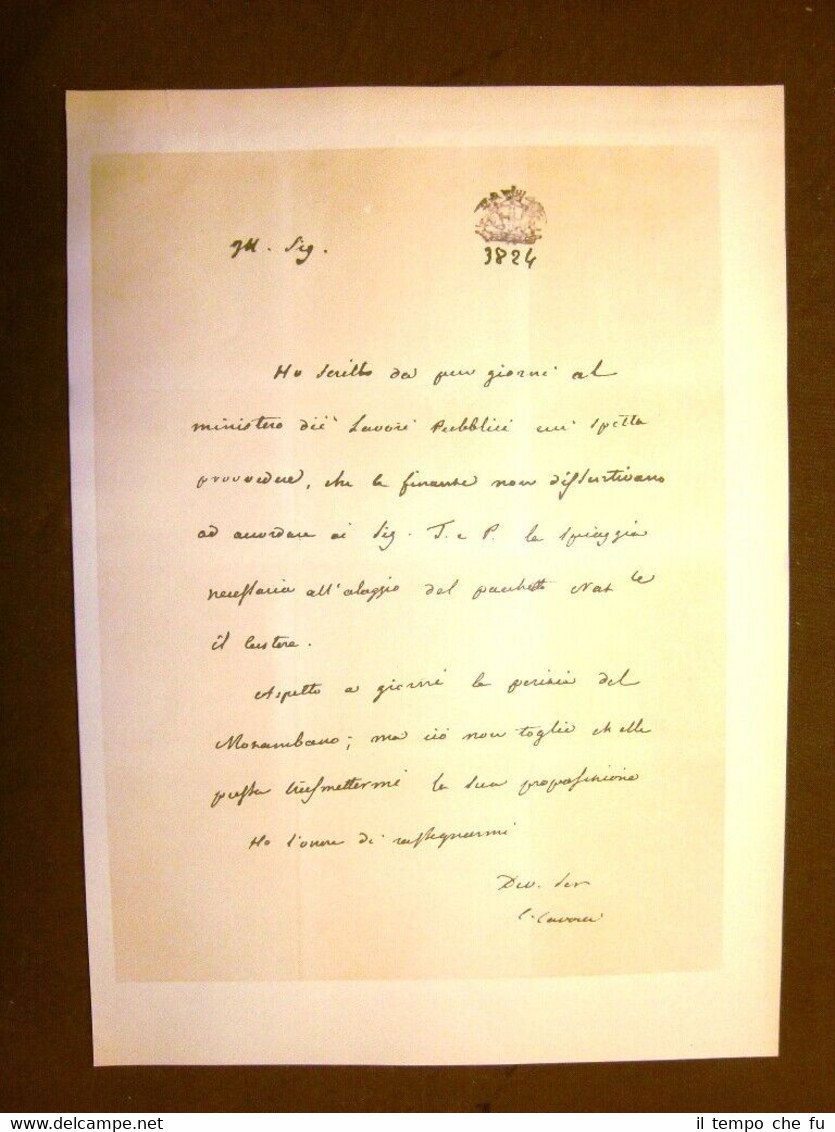 Ill. Sig.
3824
Ho scritto da più giorni al
ministero dei Lavori Pubblici cui spetta
provvedere, che le finanze non dissentivano
ad accordare ai Sig. T. e P. la spiaggia
necessaria all'alaggio del pacchetto
il
Aspetto a giorni la perizia del
Mozambano; ma ciò non toglie ch'ella
possa trasmettermi la sua proposizione
Ho l'onore di rassegnarmi
Dev. Ser
C. Cavour
WWW.DELCAMPE.NET
il tempo che fu